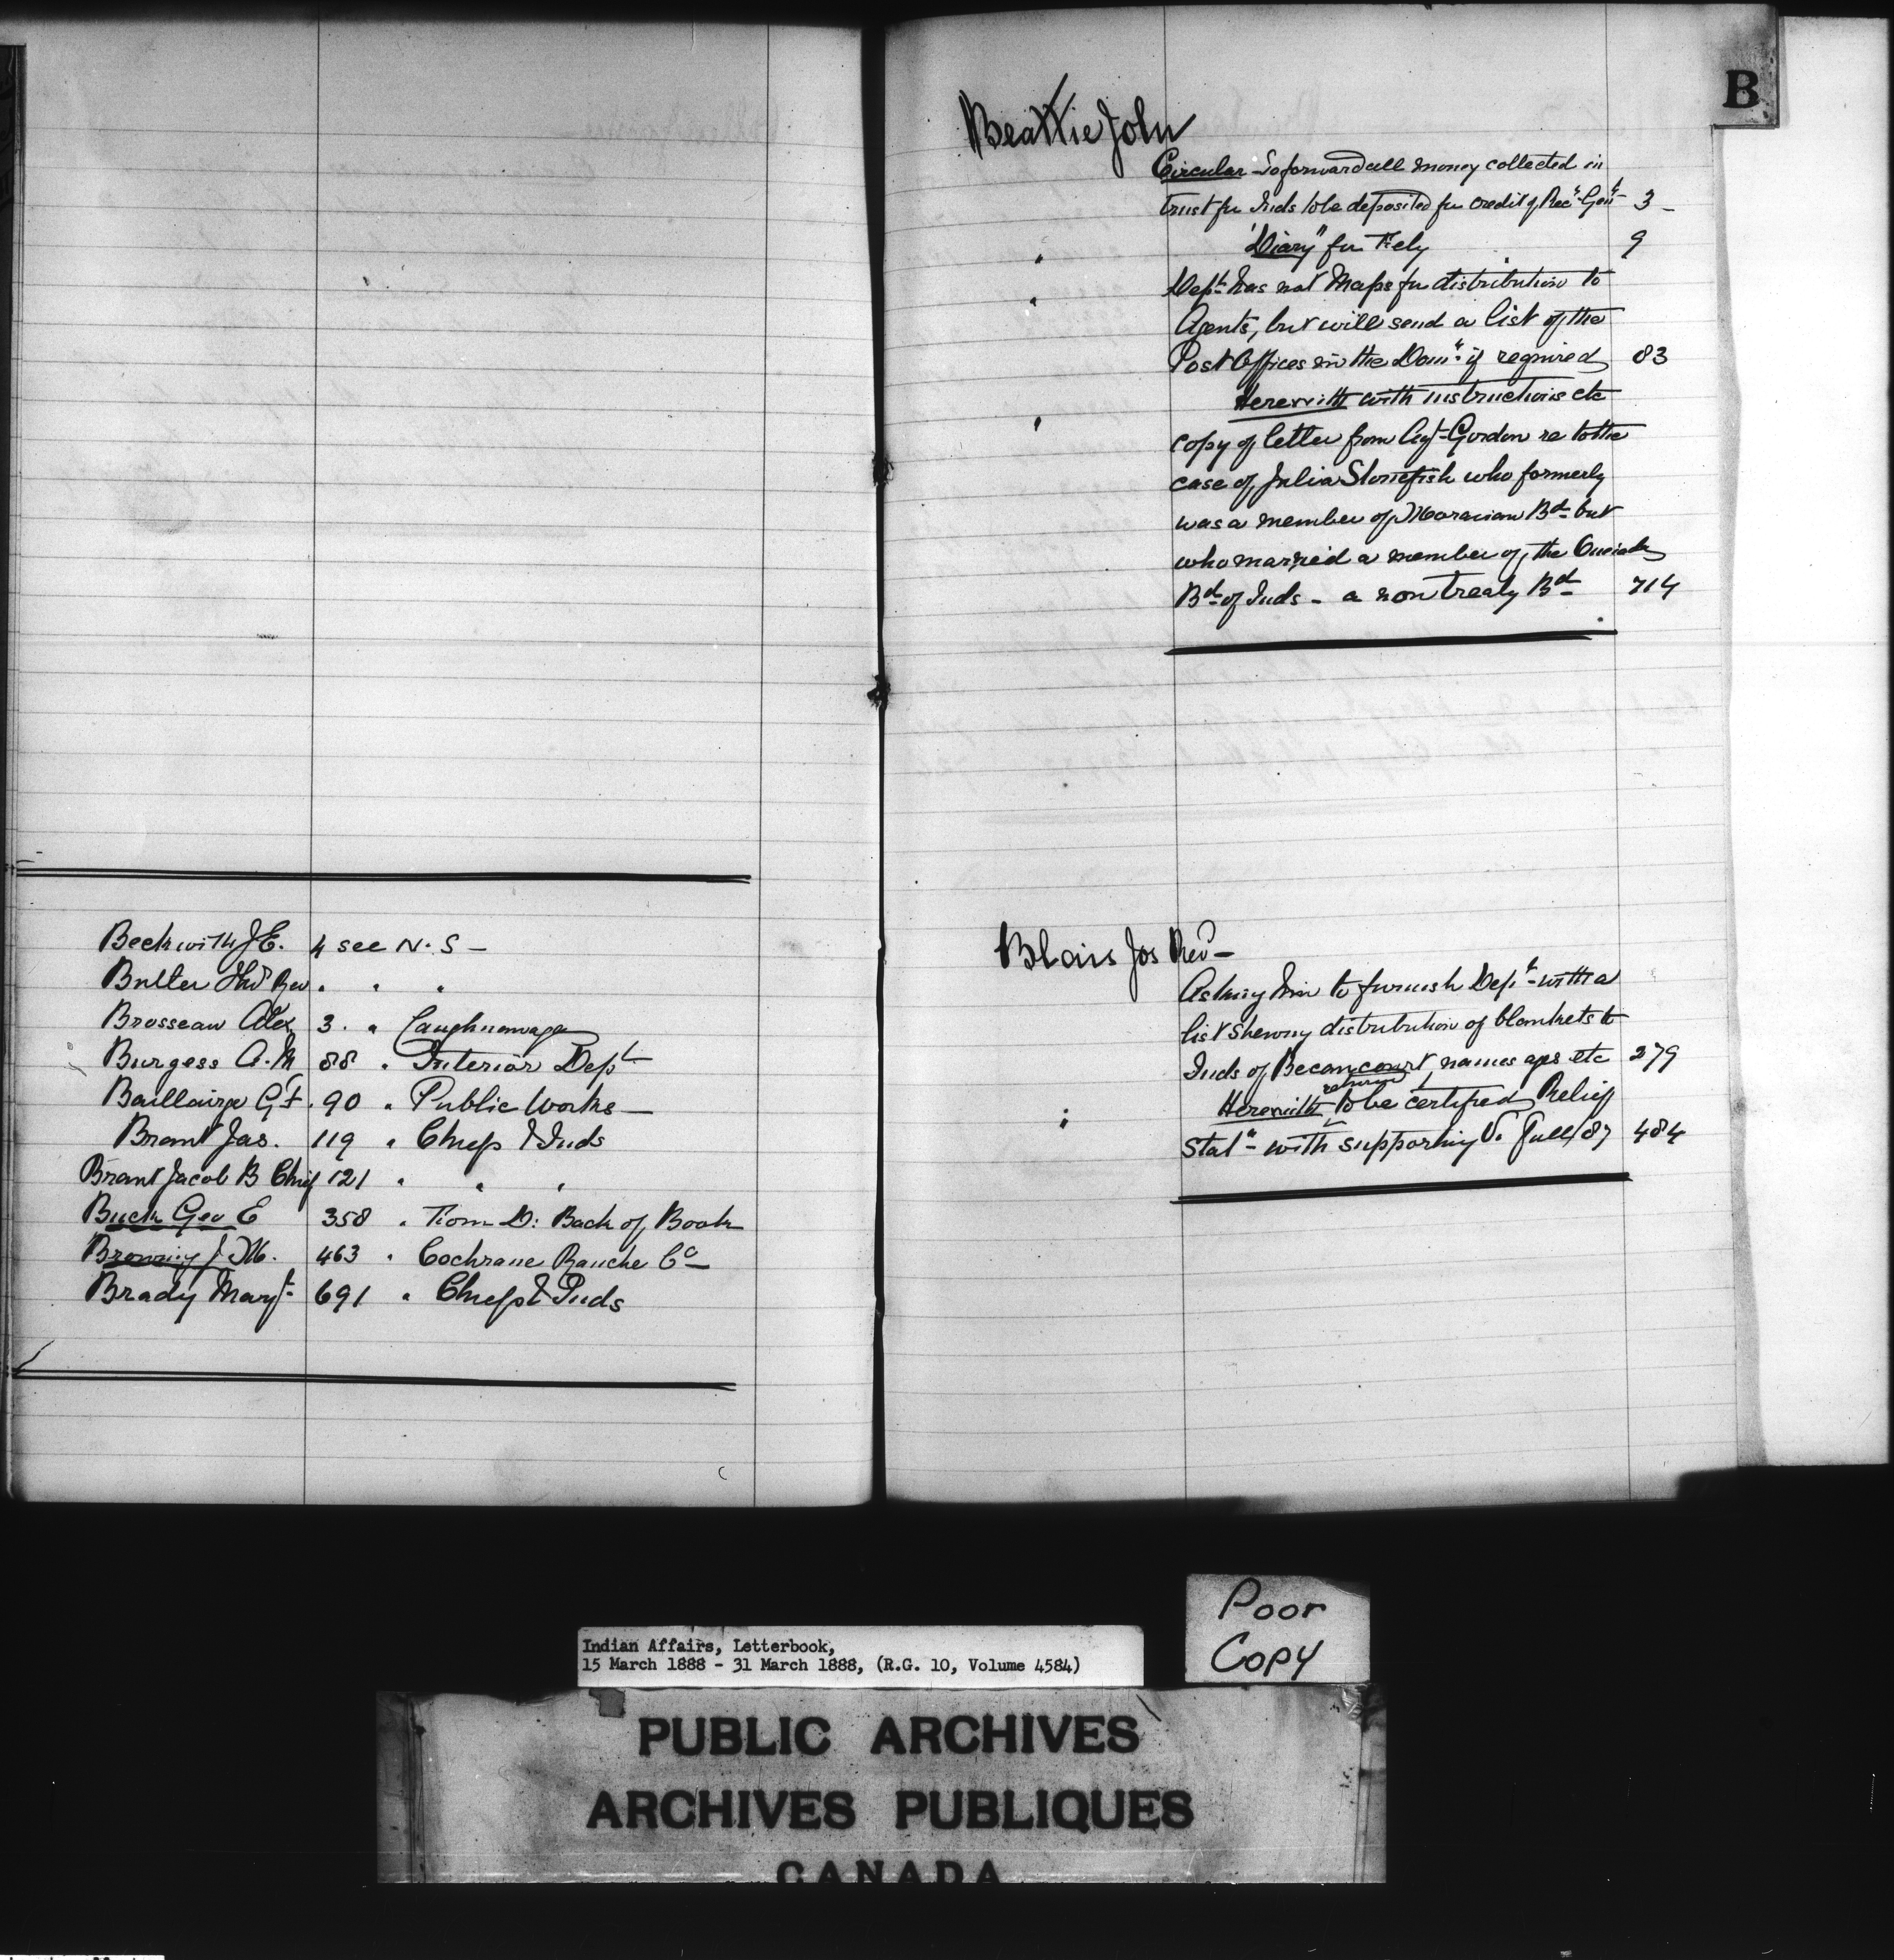 Beckwith J. E. 4 see N. S -
Butler Thos Rev " " "
Brosseau Alex 3 " Caughnawaga
Burgess A. M 88 " Interior Dept
Baillairge G F. 90 " Public Works -
Brant Jas. 119 " Chiefs & Inds
Brant Jacob B Chief 121 " " "
Buck Geo E 358 " From D: Back of Book
Browning J M. 463 " Cochrane Ranche Co -
Brady Margt 691 " Chiefs & Inds
B
Beattie John
Circular - To forward all money collected in
trust for Inds to be deposited for credit of Recr Genl 3 -
" "Diary" for Fely 9
" Dept has not Maps for distribution to
Agents, but will send a list of the
Post Offices in the Domn if required 83
" Herewith with instructions etc
copy of letter from Agt Gordon re to the
case of Julia Stonefish who formerly
was a member of Moravian Bd but
who married a member of the Oneida
Bd of Inds - a non treaty Bd 714
Blais Jos Revd -
Asking him to furnish Dept with a
list shewing distribution of blankets to
Inds of Becancourt, names ages etc 279
return
" Herewith to be certified Relief
Stat - with supporting V. full/87 484
Poor
Copy
Indian Affairs, Letterbook,
15 March 1888 - 31 March 1888, (R.G. 10, Volume 4584)
PUBLIC ARCHIVES
ARCHIVES PUBLIQUES
CANADA